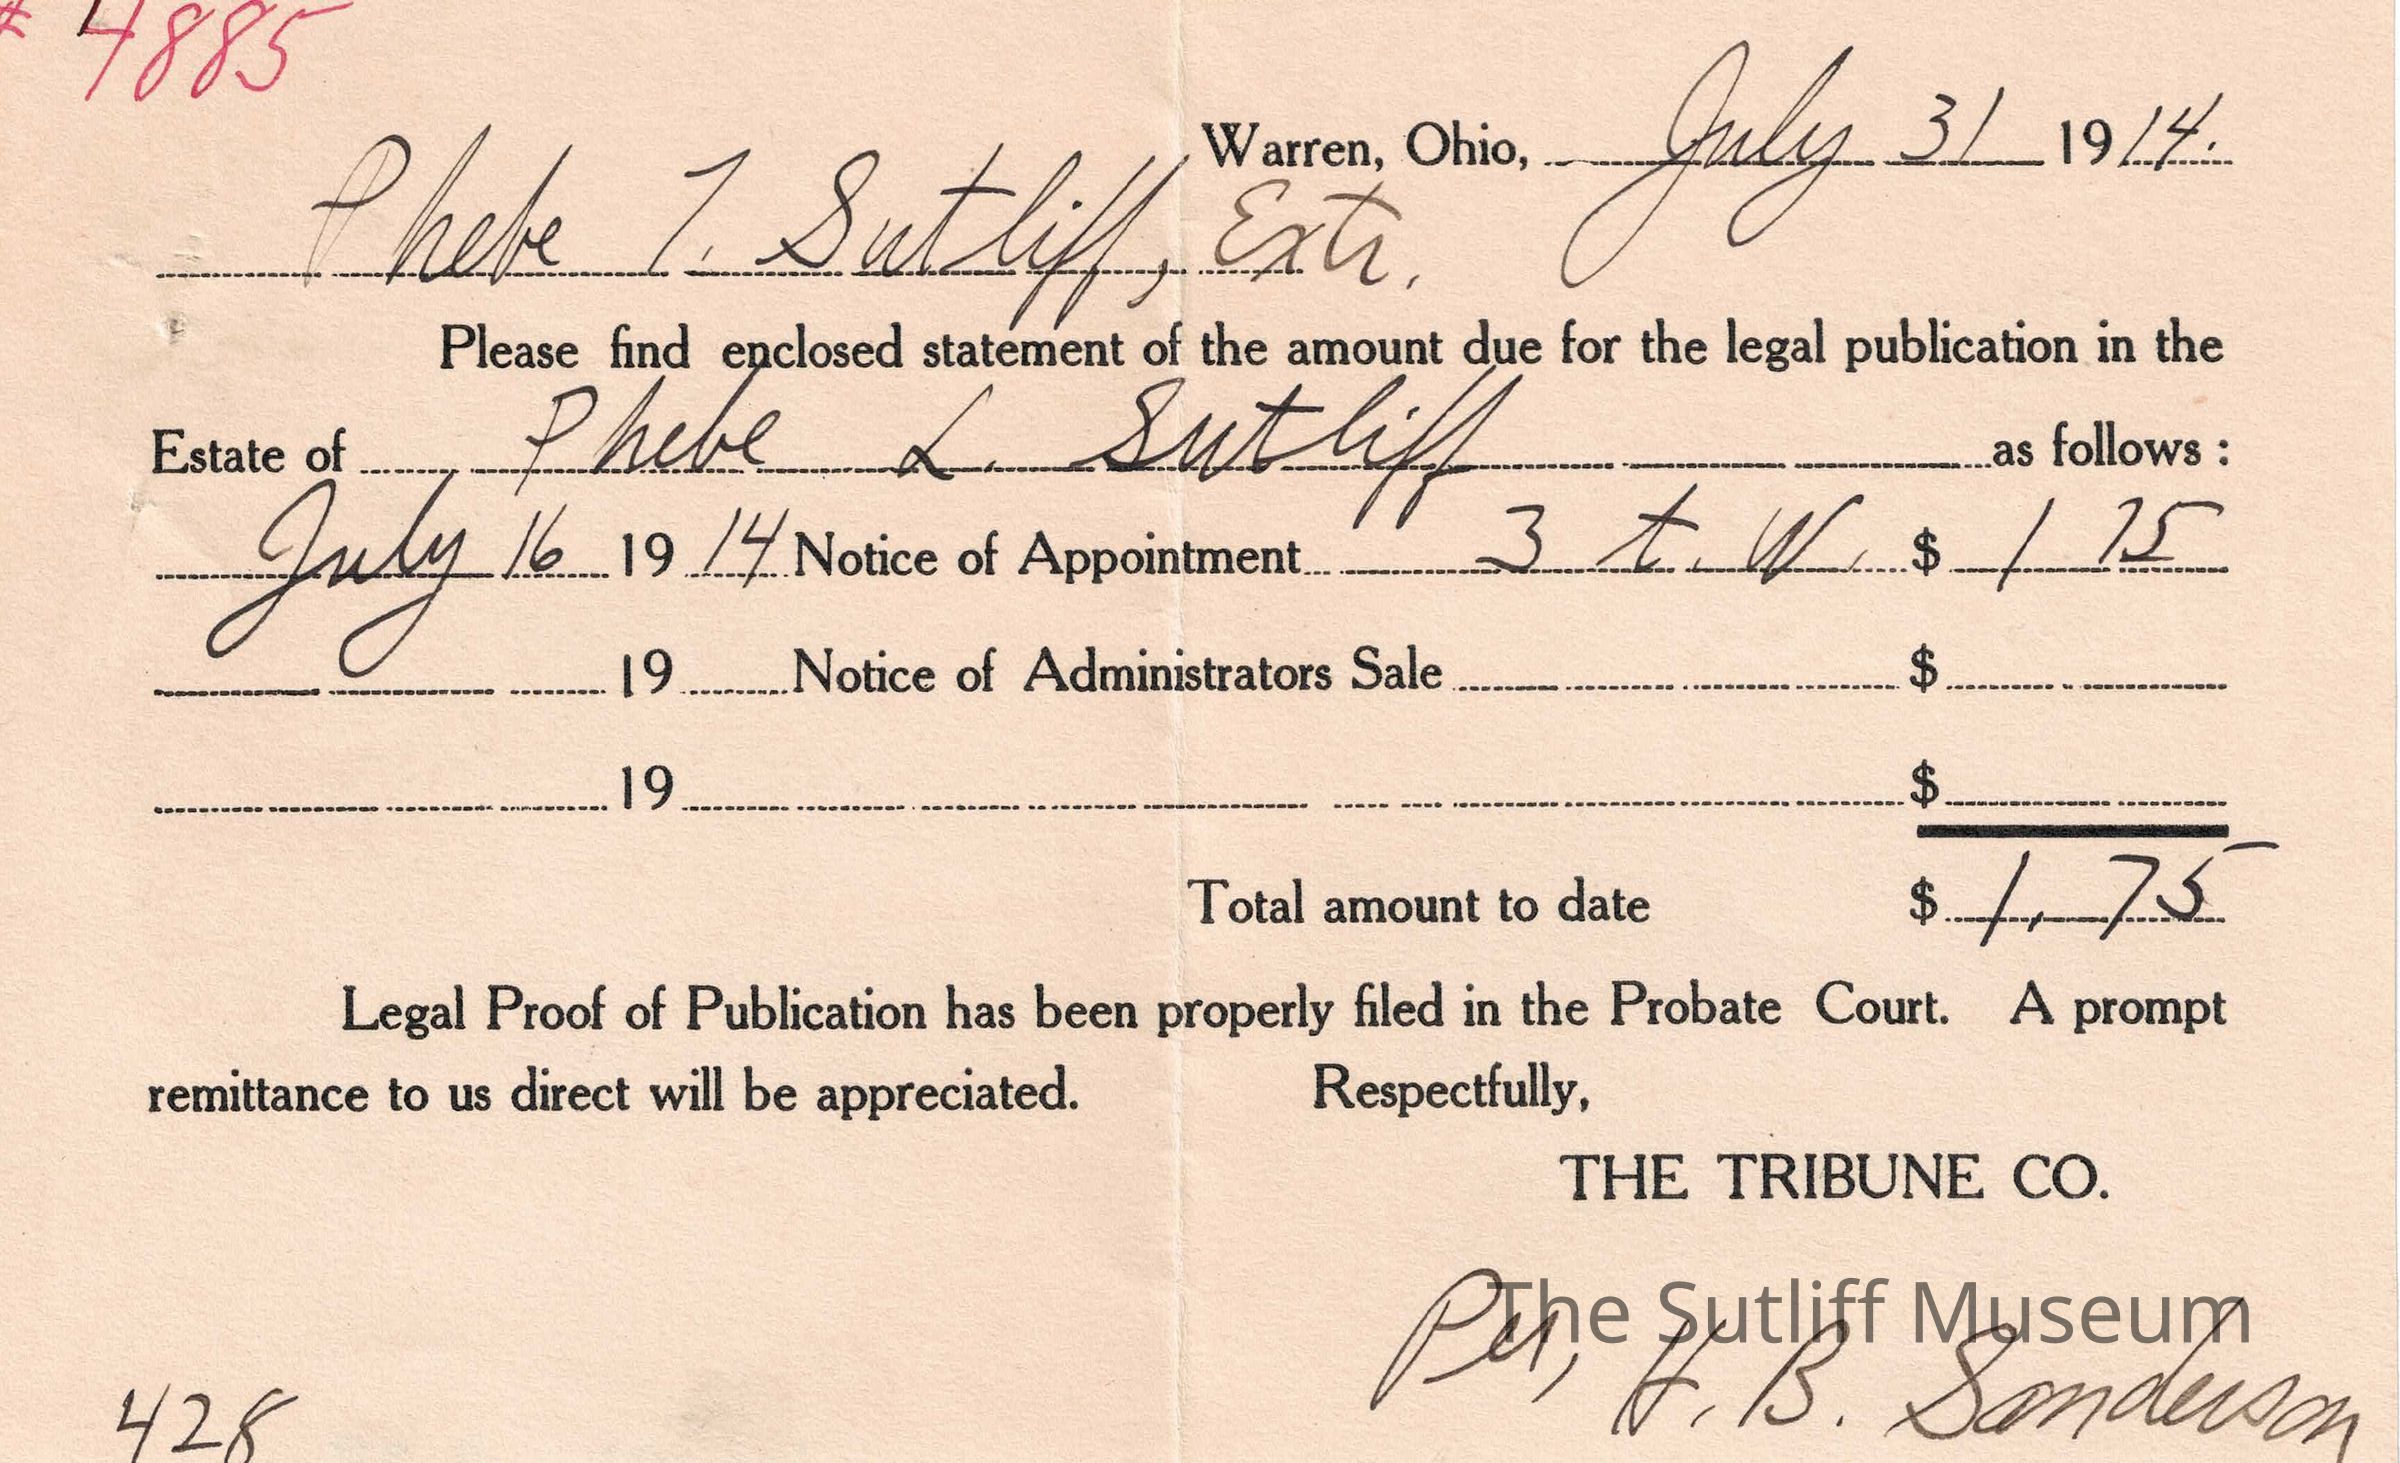 # 4885
Warren, Ohio, July 31 1914.
Phebe T. Sutliff, Extr.
Please find enclosed statement of the amount due for the legal publication in the
Estate of Phebe L. Sutliff as follows :
July 16 1914 Notice of Appointment 3 t. W. $ 1 75
19 Notice of Administrators Sale $
19 $
Total amount to date $ 1, 75
Legal Proof of Publication has been properly filed in the Probate Court. A prompt
remittance to us direct will be appreciated. Respectfully,
THE TRIBUNE CO.
The Sutliff Museum
Per, H. B. Sanderson
428